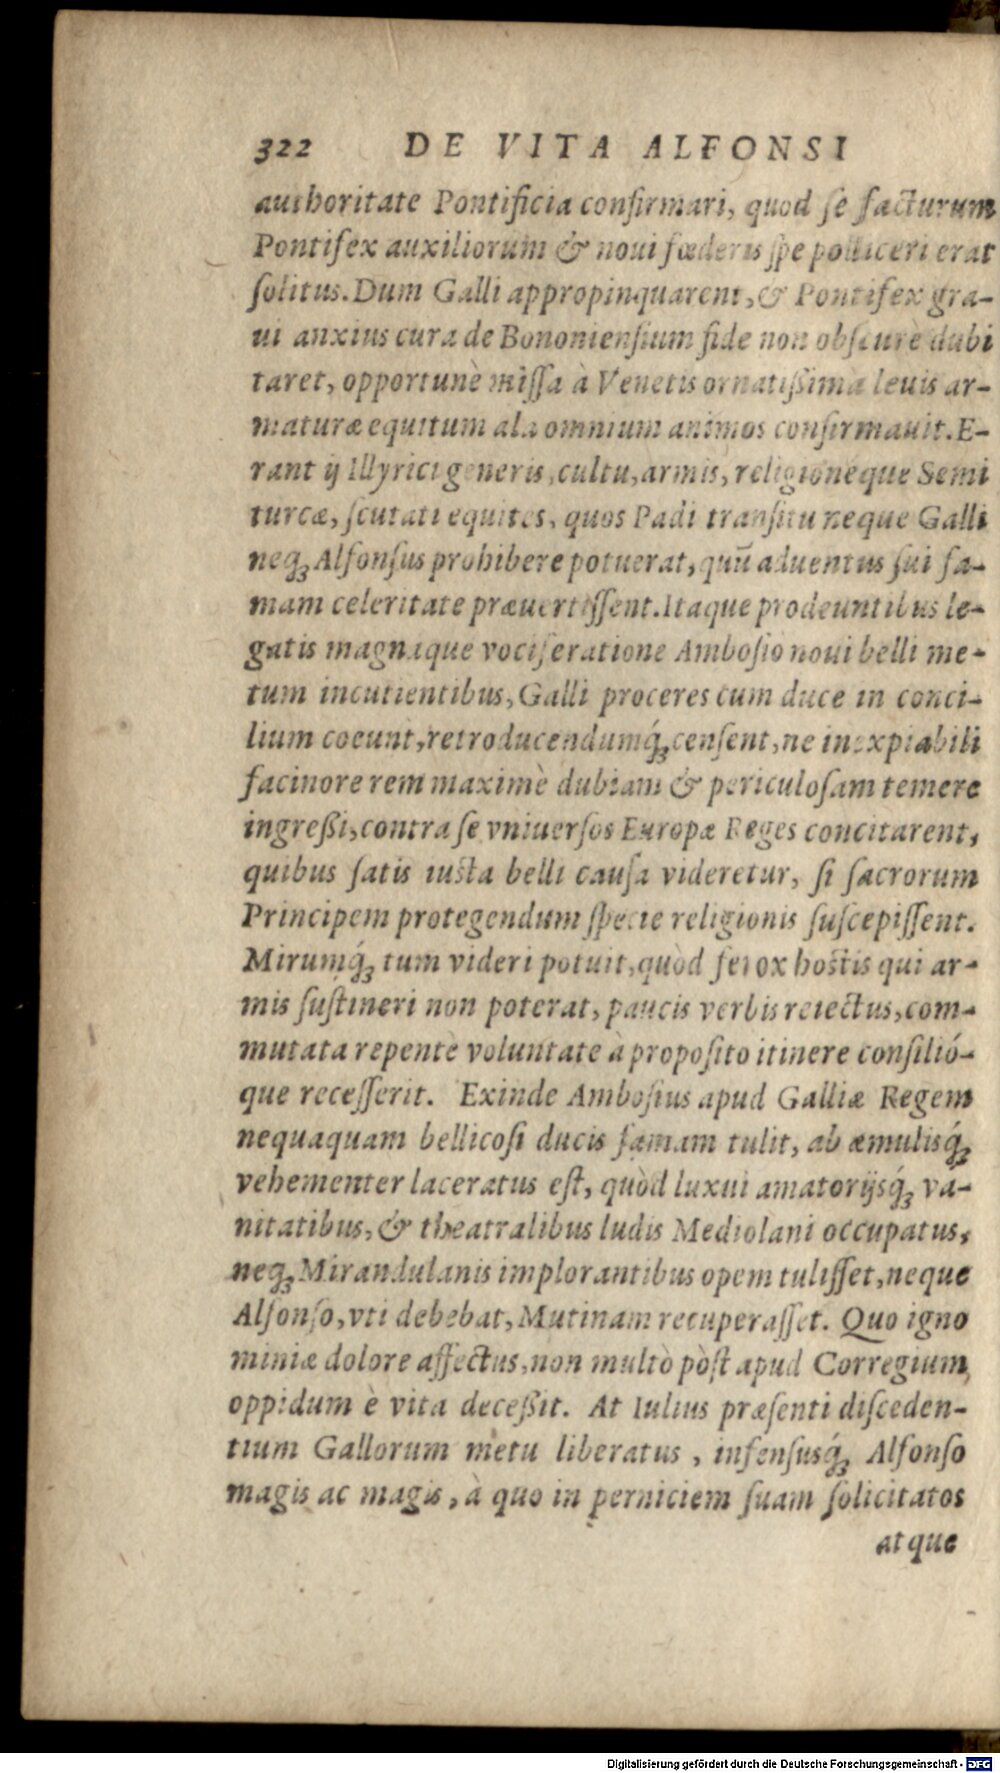 322 DE VITA ALFONSI
authoritate Pontificia confirmari, quod se facturum
Pontifex auxiliorum & noui fœderis spe polliceri erat
solitus. Dum Galli appropinquarent, & Pontifex gra-
ui anxius cura de Bononiensium fide non obscurè dubi
taret, opportunè missa à Venetis ornatißima leuis ar-
maturæ equitum ala omnium animos confirmauit. E-
rant ij Illyrici generis, cultu, armis, religionéque Semi
turcæ, scutati equites, quos Padi transitu neque Galli
neq; Alfonsus prohibere potuerat, quū aduentus sui fa-
mam celeritate præuertissent. Itaque prodeuntibus le-
gatis magnaque vociferatione Ambosio noui belli me-
tum incutientibus, Galli proceres cum duce in conci-
lium coeunt, retroducendumq́; censent, ne inexpiabili
facinore rem maximè dubiam & periculosam temere
ingreßi, contra se vniuersos Europæ Reges concitarent,
quibus satis iusta belli causa videretur, si sacrorum
Principem protegendum specie religionis suscepissent.
Mirumq́; tum videri potuit, quòd ferox hostis qui ar-
mis sustineri non poterat, paucis verbis reiectus, com-
mutata repentè voluntate à proposito itinere consilió-
que recesserit. Exinde Ambosius apud Galliæ Regem
nequaquam bellicosi ducis famam tulit, ab æmulisq́;
vehementer laceratus est, quòd luxui amatorijsq́; va-
nitatibus, & theatralibus ludis Mediolani occupatus,
neq; Mirandulanis implorantibus opem tulisset, neque
Alfonso, vti debebat, Mutinam recuperasset. Quo igno
miniæ dolore affectus, non multò pòst apud Corregium
oppidum è vita deceßit. At Iulius præsenti disceden-
tium Gallorum metu liberatus, infensusq́; Alfonso
magis ac magis, à quo in perniciem suam solicitatos
atque
Digitalisierung gefördert durch die Deutsche Forschungsgemeinschaft - DFG